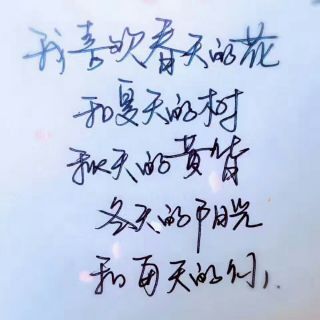 我喜欢春天的花
和夏天的树
秋天的黄昏
冬天的阳光
和每天的你